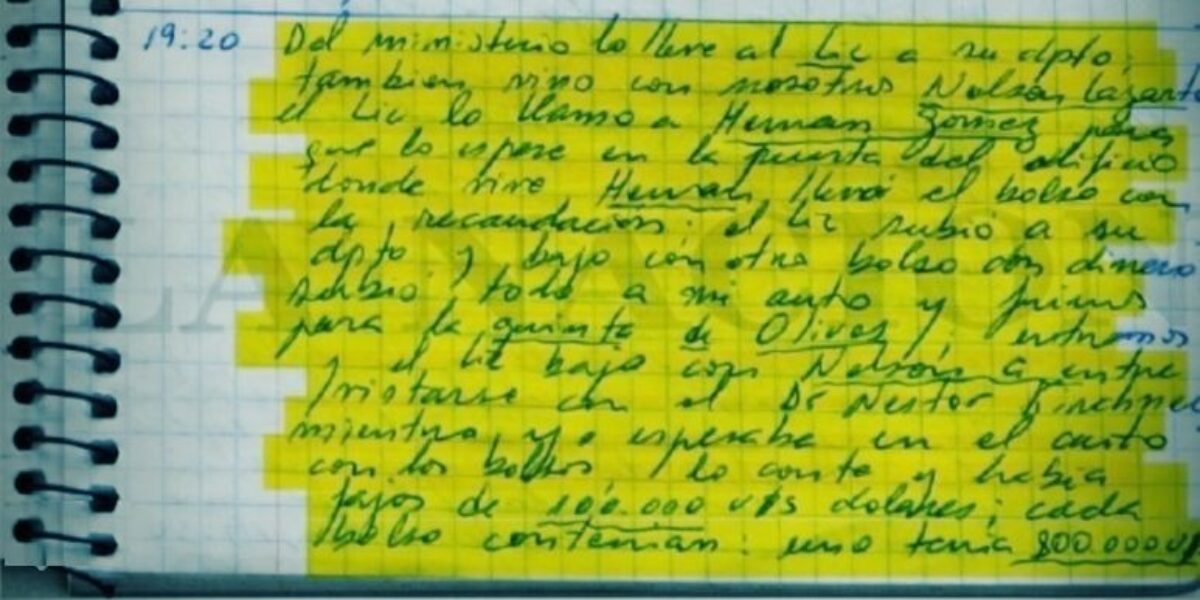 19:20 Del ministerio lo lleve al Lic a su dpto,
tambien vino con nosotros Nelson Lazarte
el Lic lo llamo a Hernan Gomez para
que lo espere en la puerta del edificio
donde vive Hernan, llevó el bolso con
la recaudacion; el Lic subio a su
dpto. y bajo con otro bolso con dinero
subio todo a mi auto y fuimos
para la quinta de Olivos, entramos
y el Lic bajo con Nelson a
con el Dr Nestor
mientras yo esperaba en el auto
con los bolsos, lo conte y habia
fajos de 100.000 U$S dolares; cada
bolso contenian: uno tenia 800.000 U$
LA NACION